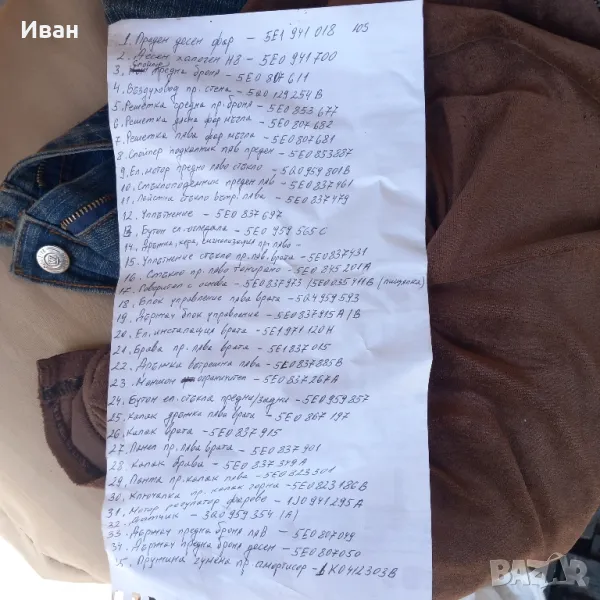 Иван
1. Преден десен фар - 5E1 941 018 105
2. Десен халоген H8 - 5E0 941 700
3. Спойлер предна броня - 5E0 807 611
4. Въздуховод пр. стена - 5Q0 129 254 B
5. Решетка средна пр. броня - 5E0 853 677
6. Решетка дясна фар мъгла - 5E0 807 682
7. Решетка лява фар мъгла - 5E0 807 681
8. Спойлер подкалник ляв преден - 5E0 853 887
9. Ел. мотор предно ляво стъкло - 5Q0 959 801 B
10. Стъклоподемник преден ляв - 5E0 837 461
11. Лайстна стъкло вътр. лява - 5E0 837 479
12. Уплътнение - 5E0 837 697
13. Бутон ел. огледала - 5E0 959 565 C
14. Дръжка, кора, сигнализация пр. ляво -
15. Уплътнение стъкло пр. ляв. врата - 5E0 837 431
16. Стъкло пр. ляво тонирано - 5E0 845 201 A
17. Говорител с основа - 5E0 837 973 / 5E0 035 411 B (пищялка)
18. Блок управление лява врата - 5Q4 959 593
19. Държач блок управление - 5E0 837 915 A/B
20. Ел. инсталация врата - 5E1 971 120 H
21. Брава пр. лява врата - 5E1 837 015
22. Дръжка вътрешна лява - 5E0 837 885 B
23. Маншон ограничител - 5E0 837 267 A
24. Бутон ел. стъкла предни/задни - 5E0 959 857
25. Капак дръжка лява врата - 5E0 867 197
26. Капак врата - 5E0 837 915
27. Панел пр. лява врата - 5E0 837 901
28. Капак брава - 5E0 837 349 A
29. Панта пр. капак лява - 5E0 823 301
30. Ключалка пр. капак горна - 5E0 823 186 B
31. Мотор регулатор фарове - 1J0 941 295 A
32. Датчик - 3Q0 959 354 (A)
33. Държач предна броня ляв - 5E0 807 049
34. Държач предна броня десен - 5E0 807 050
35. Пружина гумена пр. амортисьор - 1K0 412 303 B
BAZAR